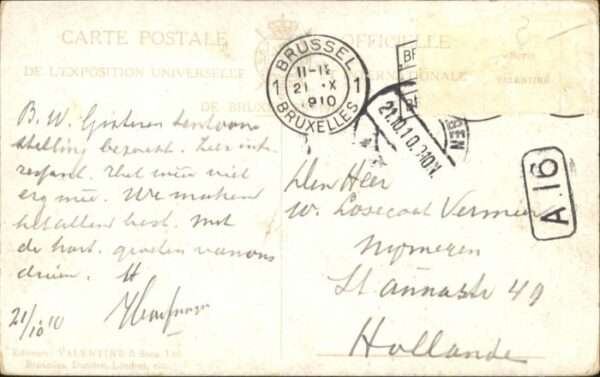 CARTE POSTALE OFFICIELLE
DE L'EXPOSITION UNIVERSELLE INTERNATIONALE
DE BRUX
VALENTINE
BRUSSEL
11-12
1 21 X 1
1910
BRUXELLES
21.10.10.
A.16
B. W. Gisteren tentoon
stelling bezocht. Zeer int.
ressant. Het viel
erg mee. We maken
het allen best. Met
de hart. groeten van ons
drieën. H
21/10 10
Den Heer
W. Losecaat Vermeer
Nijmegen
St Annastr 49
Hollande
Editeurs: VALENTINE & Sons Ltd.
Bruxelles, Dundee, Londres, etc.